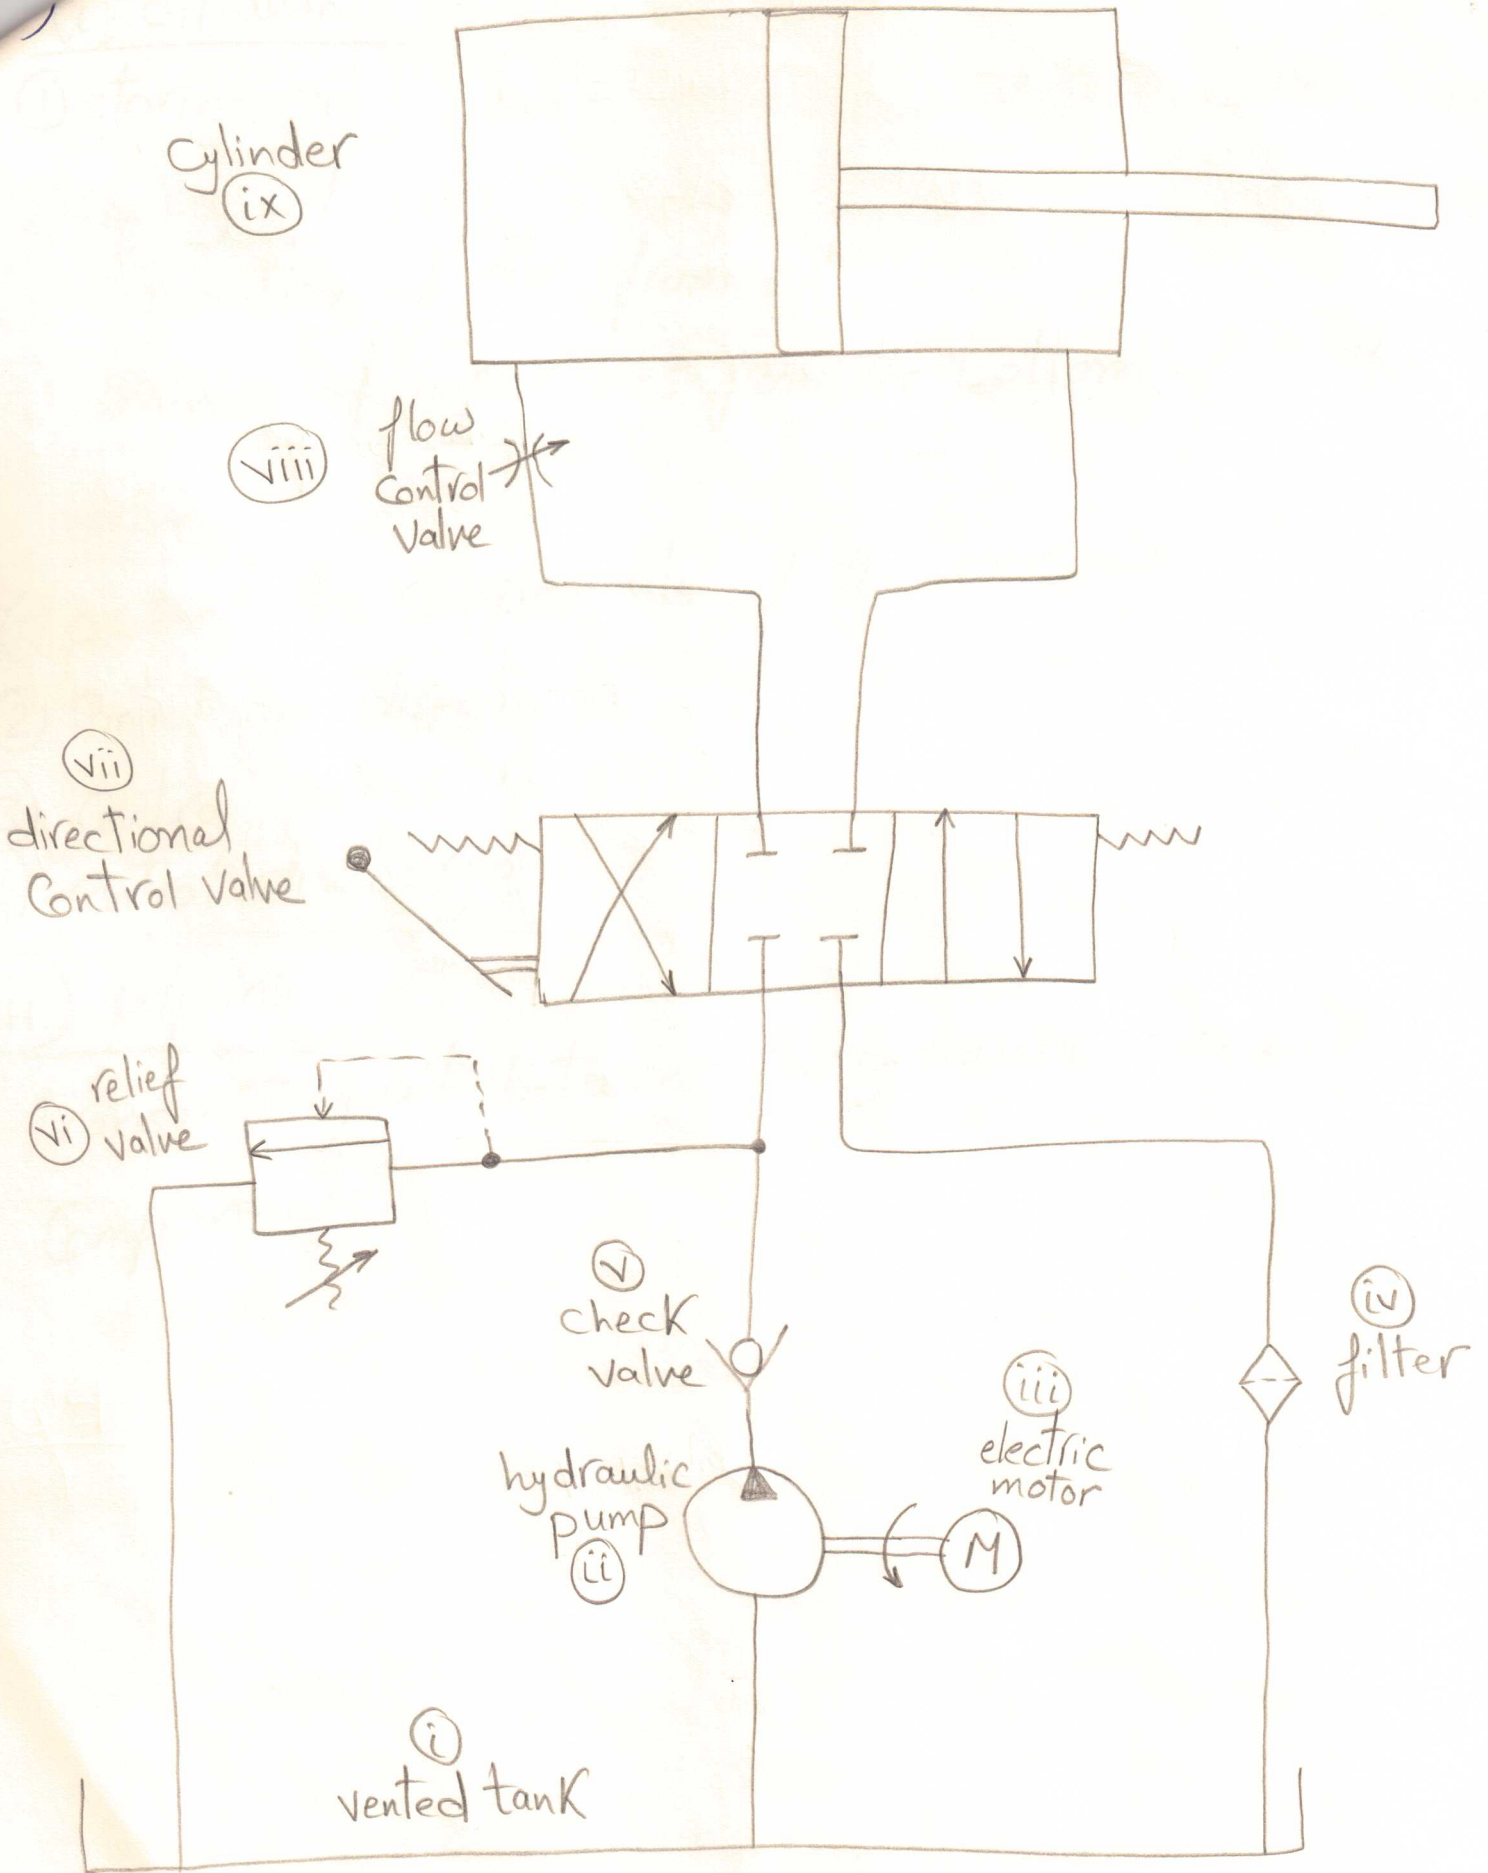 cylinder
ix
viii
flow
control
valve
vii
directional
control valve
relief
vi
valve
v
check
valve
iv
filter
iii
electric
motor
hydraulic
pump
ii
M
i
vented tank